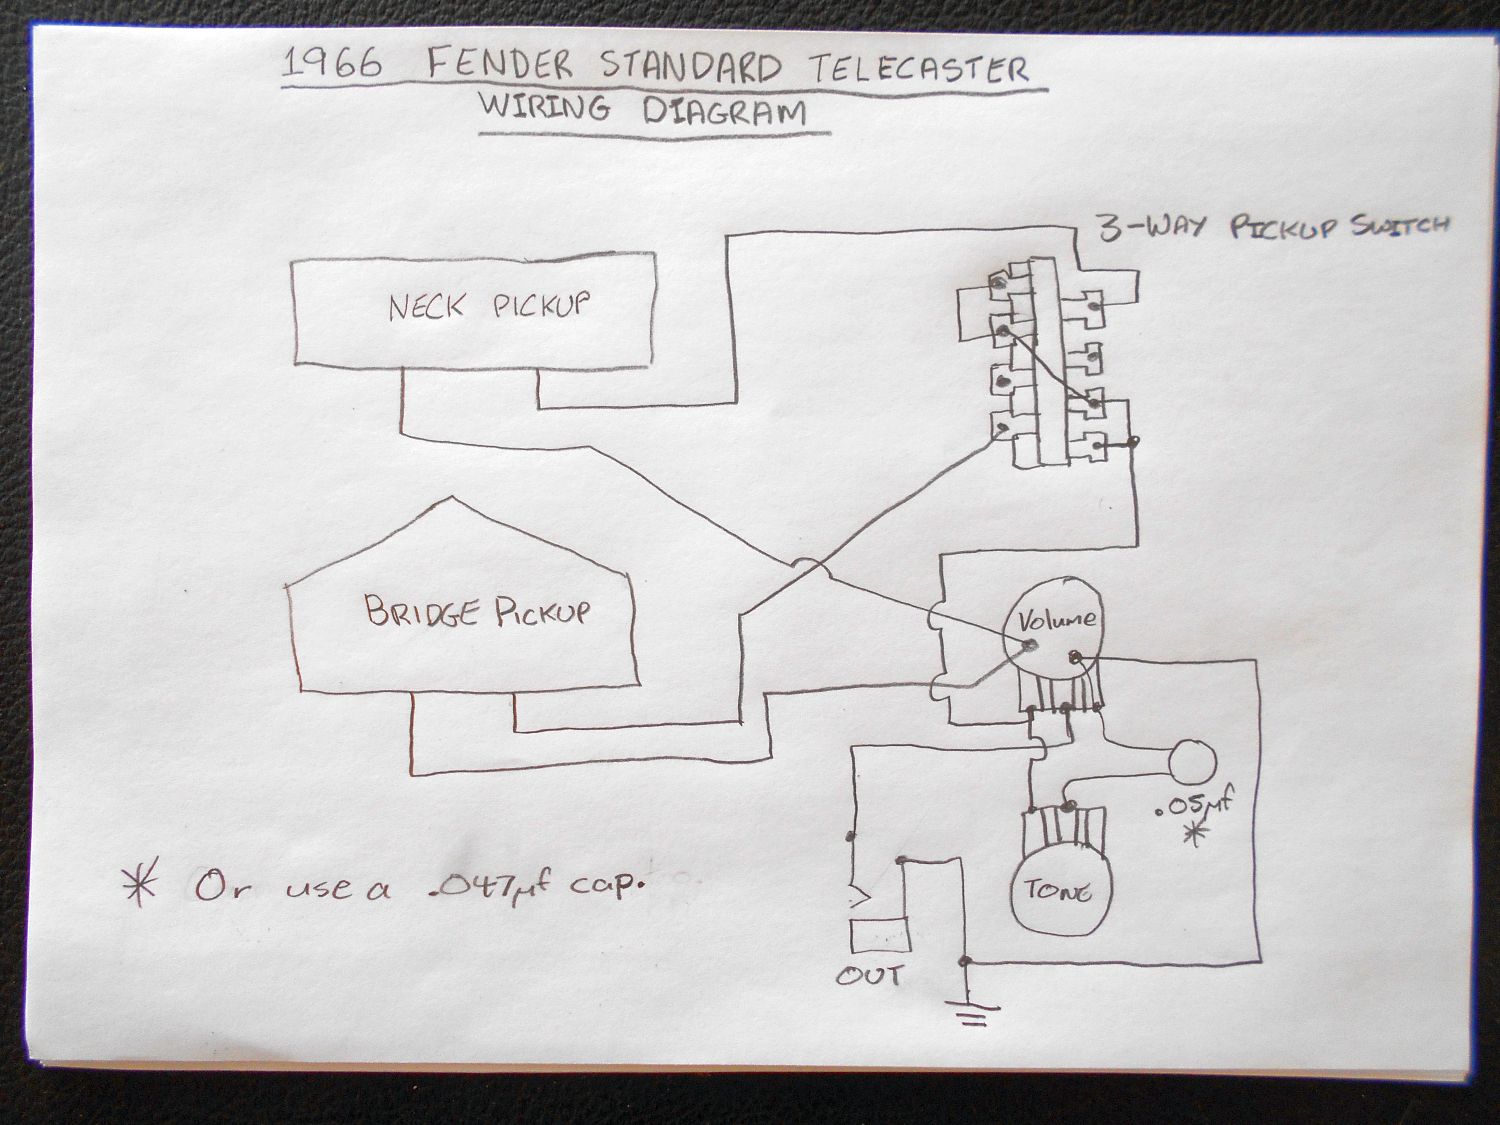 1966 FENDER STANDARD TELECASTER
WIRING DIAGRAM
3-WAY PICKUP SWITCH
NECK PICKUP
BRIDGE PICKUP
Volume
.05µf
*
* Or use a .047µf cap.
TONE
OUT